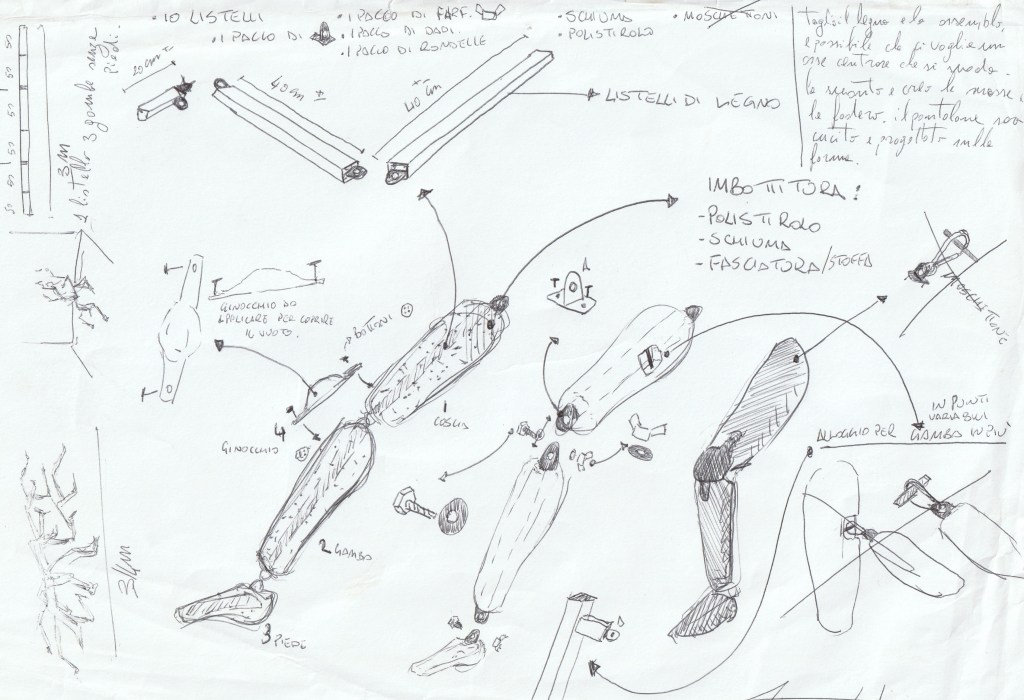 • 10 LISTELLI
• 1 PACCO DI
• 1 PACCO DI FARF.
• 1 PACCO DI DADI.
• 1 PACCO DI RONDELLE
- SCHIUMA
• POLISTIROLO
• MOSCHETTONI
Taglio il legno e lo assemblo,
è possibile che ci voglia un
asse centrale che si snoda.
lo smonto e creo le masse e
le fodero. il pantalone sarà
cucito e progettato sulle
forme.
20 cm ±
40 cm ±
±
40 cm
LISTELLI DI LEGNO
50 50 50 50 50 50
3 m
1 listello 3 gambe senza
piedi.
IMBOTTITURA:
- POLISTIROLO
- SCHIUMA
- FASCIATURA/STOFFA
MOSCHETTONE
GINOCCHIO DA
APPLICARE PER COPRIRE
IL VUOTO.
BOTTONI
1
COSCIA
4
GINOCCHIO
2 GAMBA
3 PIEDE
IN PUNTI
VARIABILI
ALLOGGIO PER GAMBA IN PIÙ
3 m